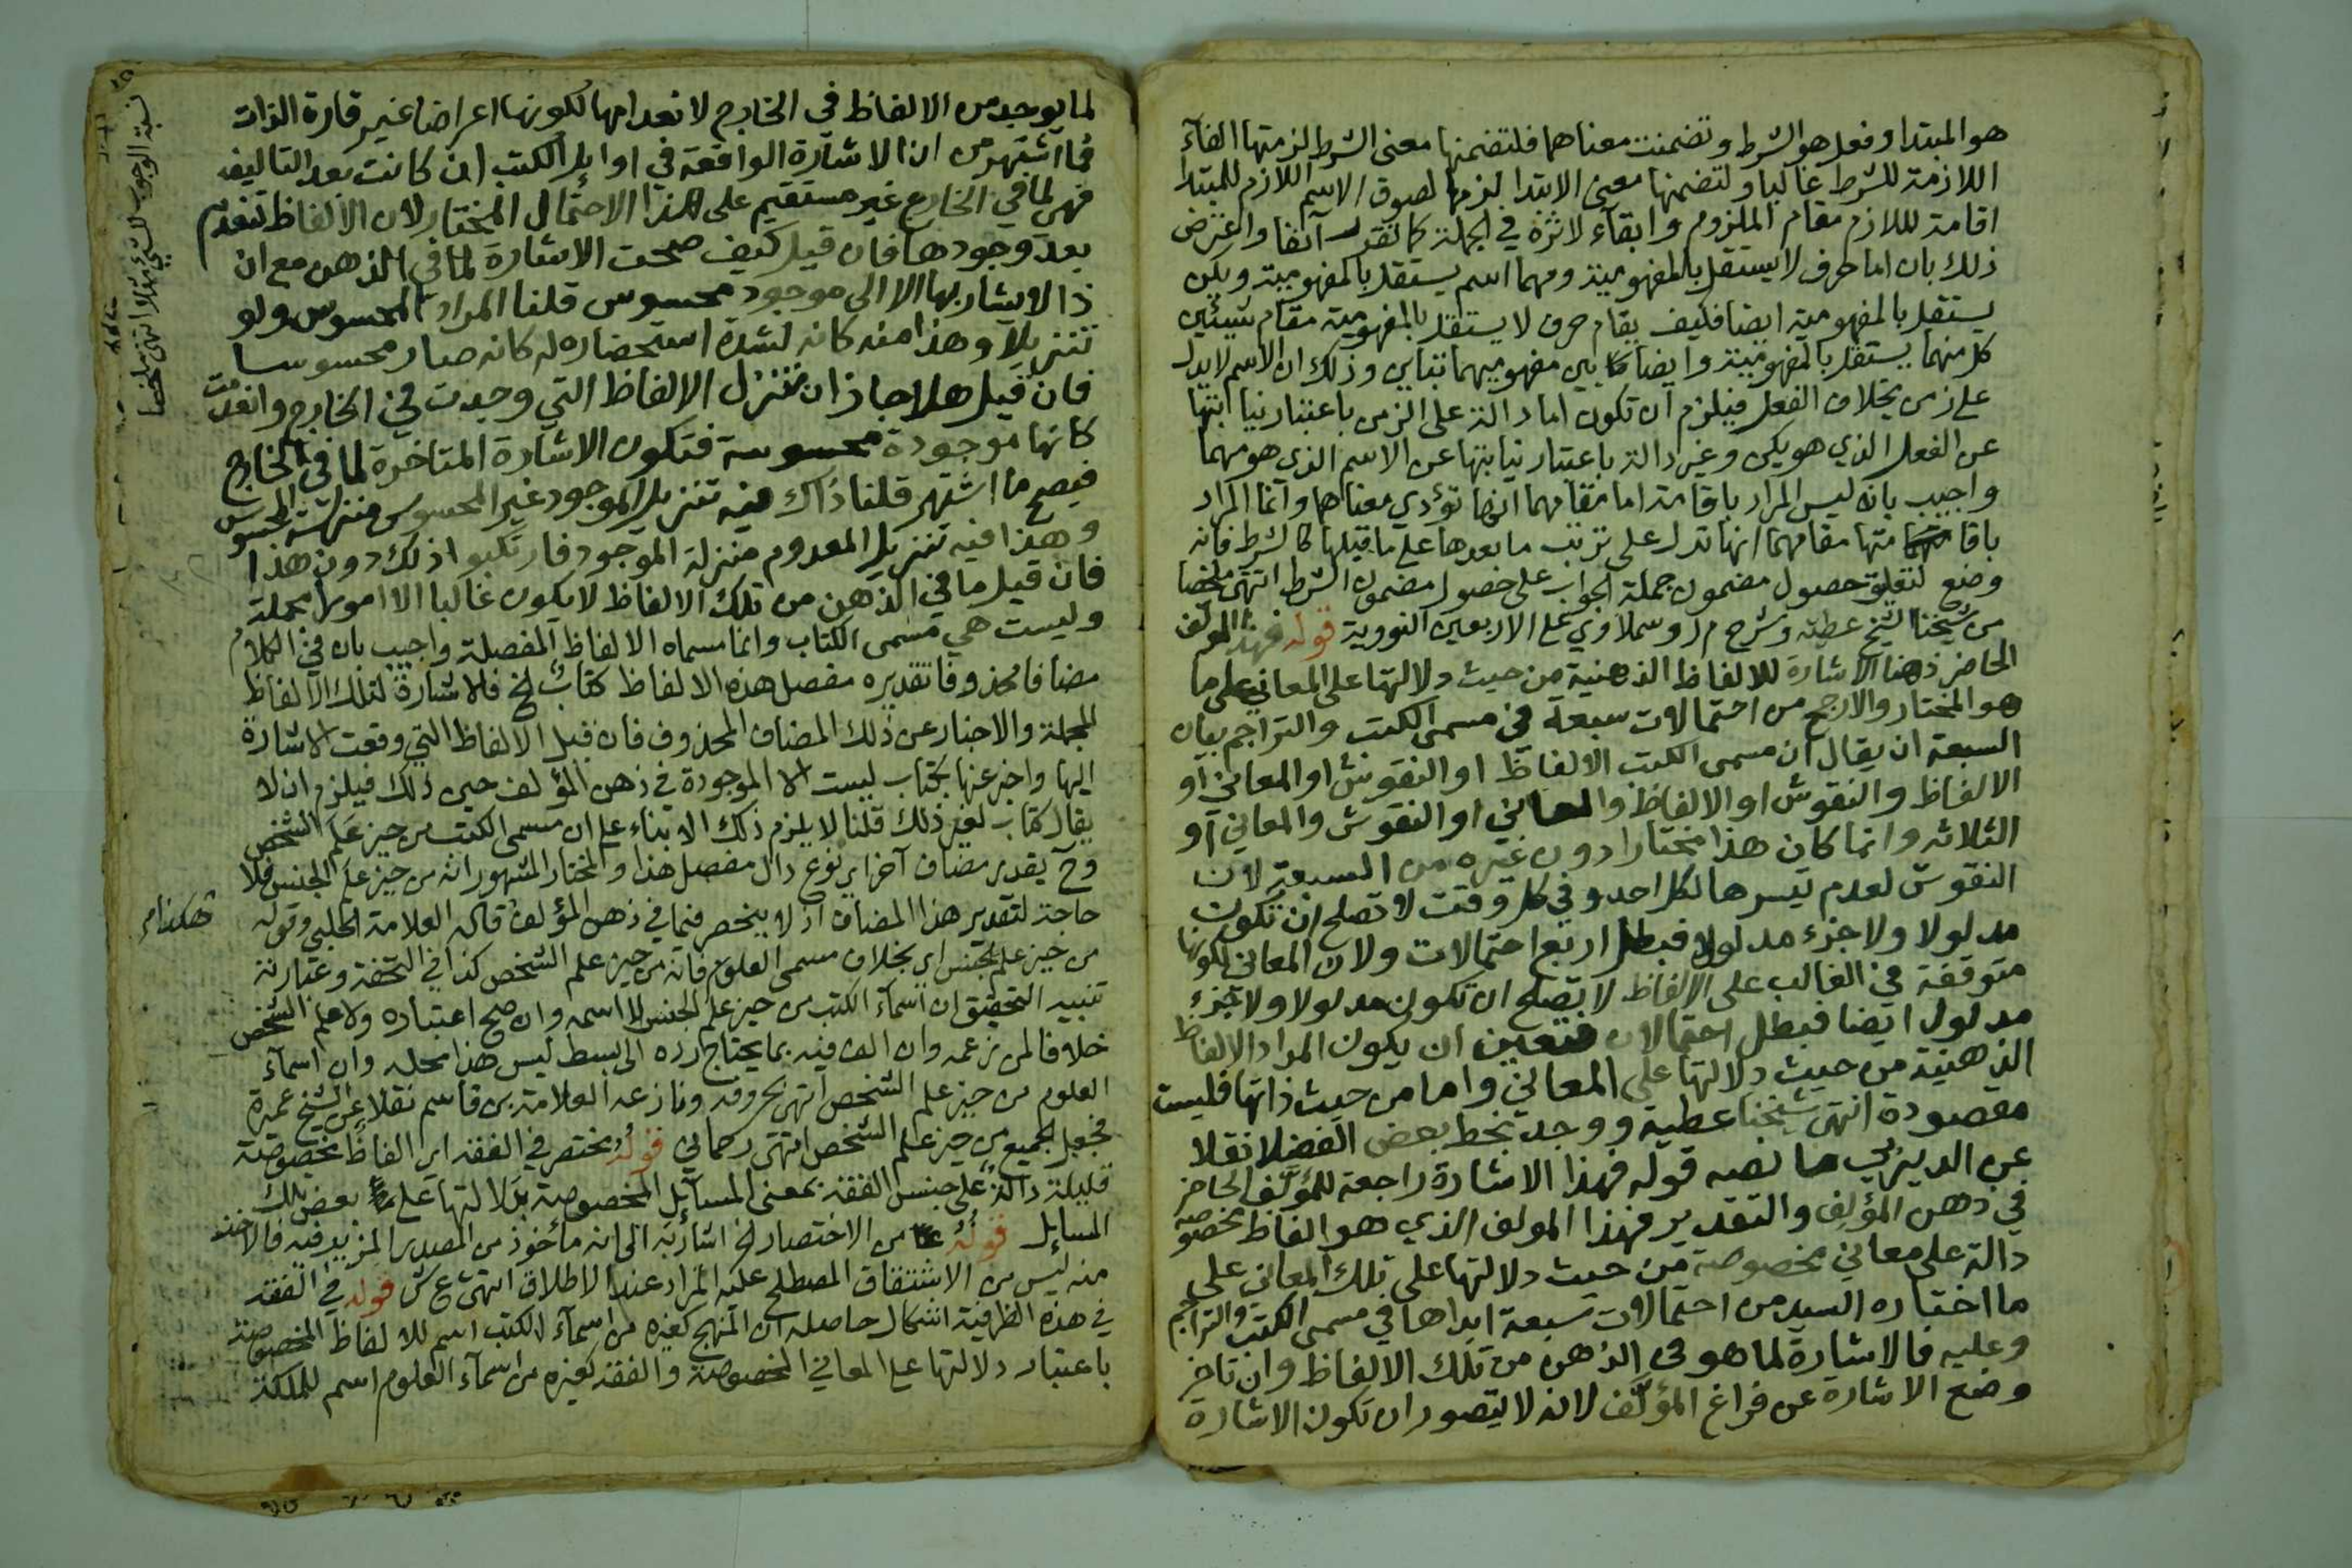 هو المبتدا وفعل هو الشرط وتضمنت معناهما فلتضمنها معنى الشرط لزمتها الفآء
اللازمة للشرط غالبا ولتضمنها معنى الابتدا لزمها لصوق الاسم اللازم للمبتدا
اقامة لللازم مقام الملزوم وابقآء لاثره في الجملة كما تقدم آنفا واعترض
ذلك بان اما حرف لا يستقل بالمفهومية ومهما اسم يستقل بالمفهومية ويكن
يستقل بالمفهومية ايضا فكيف يقام حرف لا يستقل بالمفهومية مقام شيئين
كل منهما يستقل بالمفهومية وايضا بين مفهوميهما تباين وذلك ان الاسم لا يدل
على زمن بخلاف الفعل فيلزم ان تكون اما دالة على الزمن باعتبار نيابتها
عن الفعل الذي هو يكن وغير دالة باعتبار نيابتها عن الاسم الذي هو مهما
واجيب بانه ليس المراد باقامة اما مقامهما انها تؤدي معناهما وانما المراد
باقامتها مقامهما انها تدل على ترتب ما بعدها على ما قبلها كالشرط فانه
وضع لتعليق حصول مضمون جملة الجواب على حصول مضمون الشرط انتهى ملخصا
من شيخنا الشيخ عطية وشرح م ر وسملاوي على الاربعين النووية قوله فهذا المؤلف
الحاضر ذهنا الاشارة للالفاظ الذهنية من حيث دلالتها على المعاني على ما
هو المختار والارجح من احتمالات سبعة في مسمى الكتب والتراجم بيان
السبعة ان يقال ان مسمى الكتب الالفاظ او النقوش او المعاني او
الالفاظ والنقوش او الالفاظ والمعاني او النقوش والمعاني او
الثلاثه وانما كان هذا مختارا دون غيره من السبعة لان
النقوش لعدم تيسرها لكل احد وفي كل وقت لا تصلح ان تكون
مدلولا ولا جزء مدلول فبطل اربع احتمالات ولان المعاني لكونها
متوقفة في الغالب على الالفاظ لا تصلح ان تكون مدلولا ولا جزء
مدلول ايضا فبطل احتمالان فتعين ان يكون المراد الالفاظ
الذهنية من حيث دلالتها على المعاني واما من حيث ذاتها فليست
مقصودة انتهى شيخنا عطية ووجد بخط بعض الفضلا نقلا
عن الديربي ما نصه قوله فهذا الاشارة راجعة للمؤلف الحاضر
في ذهن المؤلف والتقدير فهذا المولف الذي هو الفاظ مخصوصه
دالة على معاني مخصوصة من حيث دلالتها على تلك المعاني على
ما اختاره السيد من احتمالات سبعة ابداها في مسمى الكتب والتراجم
وعليه فالاشارة لما هو في الذهن من تلك الالفاظ وان تاخر
وضع الاشارة عن فراغ المؤلف لانه لا يتصور ان تكون الاشارة
لما يوجد من الالفاظ في الخارج لانعدامها لكونها اعراضا غير قارة الذات
فما اشتهر من ان الاشارة الواقعة في اوايل الكتب ان كانت بعد التاليف
فهي لما في الخارج غير مستقيم على هذا الاحتمال المختار لان الالفاظ تنعدم
بعد وجودها فان قيل كيف صحت الاشارة لما في الذهن مع ان
ذا لا يشار بها الا الى موجود محسوس قلنا المراد المحسوس ولو
تنزيلا وهذا منه كانه لشدة استحضاره له كانه صار محسوسا
فان قيل هلا جاز ان تنزل الالفاظ التي وجدت في الخارج وانعدمت
كانها موجودة محسوسة فتكون الاشارة المتاخرة لما في الخارج
فيصح ما اشتهر قلنا ذاك فيه تنزيل الموجود غير المحسوس منزلة المحسوس
وهذا فيه تنزيل المعدوم منزلة الموجود فارتكبوا ذلك دون هذا
فان قيل ما في الذهن من تلك الالفاظ لا يكون غالبا الا امورا مجملة
وليست هي مسمى الكتاب وانما مسماه الالفاظ المفصلة واجيب بان في الكلام
مضافا محذوفا تقديره مفصل هذه الالفاظ كتاب الخ فالاشارة لتلك الالفاظ
المجملة والاخبار عن ذلك المضاف المحذوف فان قيل الالفاظ التي وقعت الاشارة
اليها واخبر عنها بكتاب ليست الا الموجودة في ذهن المؤلف حين ذلك فيلزم ان لا
يقال كتاب لغير ذلك قلنا لا يلزم ذلك الا بناء على ان مسمى الكتب من حيز علم الشخص
وح يقدر مضاف آخر اي نوع دال مفصل هذا والمختار المشهور انه من حيز علم الجنس فلا
حاجة لتقدير هذا المضاف اذ لا ينحصر فيما في ذهن المؤلف قاله العلامة الحلبي وقوله
من حيز علم الجنس اي بخلاف مسمى العلوم فانه من حيز علم الشخص كذا في التحفة وعبارته
تنبيه التحقيق ان اسمآء الكتب من حيز علم الجنس لا اسمه وان صح اعتباره ولا علم الشخص
خلافا لمن زعمه وان الف فيه بما يحتاج رده الى بسط ليس هذا محله وان اسمآء
العلوم من حيز علم الشخص انتهى بحروفه ونازعه العلامة بن قاسم نقلا عن الشيخ عميرة
فجعل الجميع من حيز علم الشخص انتهى رحماني قوله مختصر في الفقه اي الفاظ مخصوصة
قليلة دالة على جنس الفقه بمعنى المسائل المخصوصة بدلالتها على بعض تلك
المسايل قوله من الاختصار الخ اشار به الى انه مأخوذ من المصدر المزيد فيه فالاخذ
منه ليس من الاشتقاق المصطلح عليه المراد عند الاطلاق انتهى ع ش قوله في الفقه
في هذه الظرفية اشكال حاصله ان المنهج كغيره من اسمآء الكتب اسم للالفاظ المخصوصة
باعتبار دلالتها على المعاني المخصوصة والفقه كغيره من اسمآء العلوم اسم للملكة